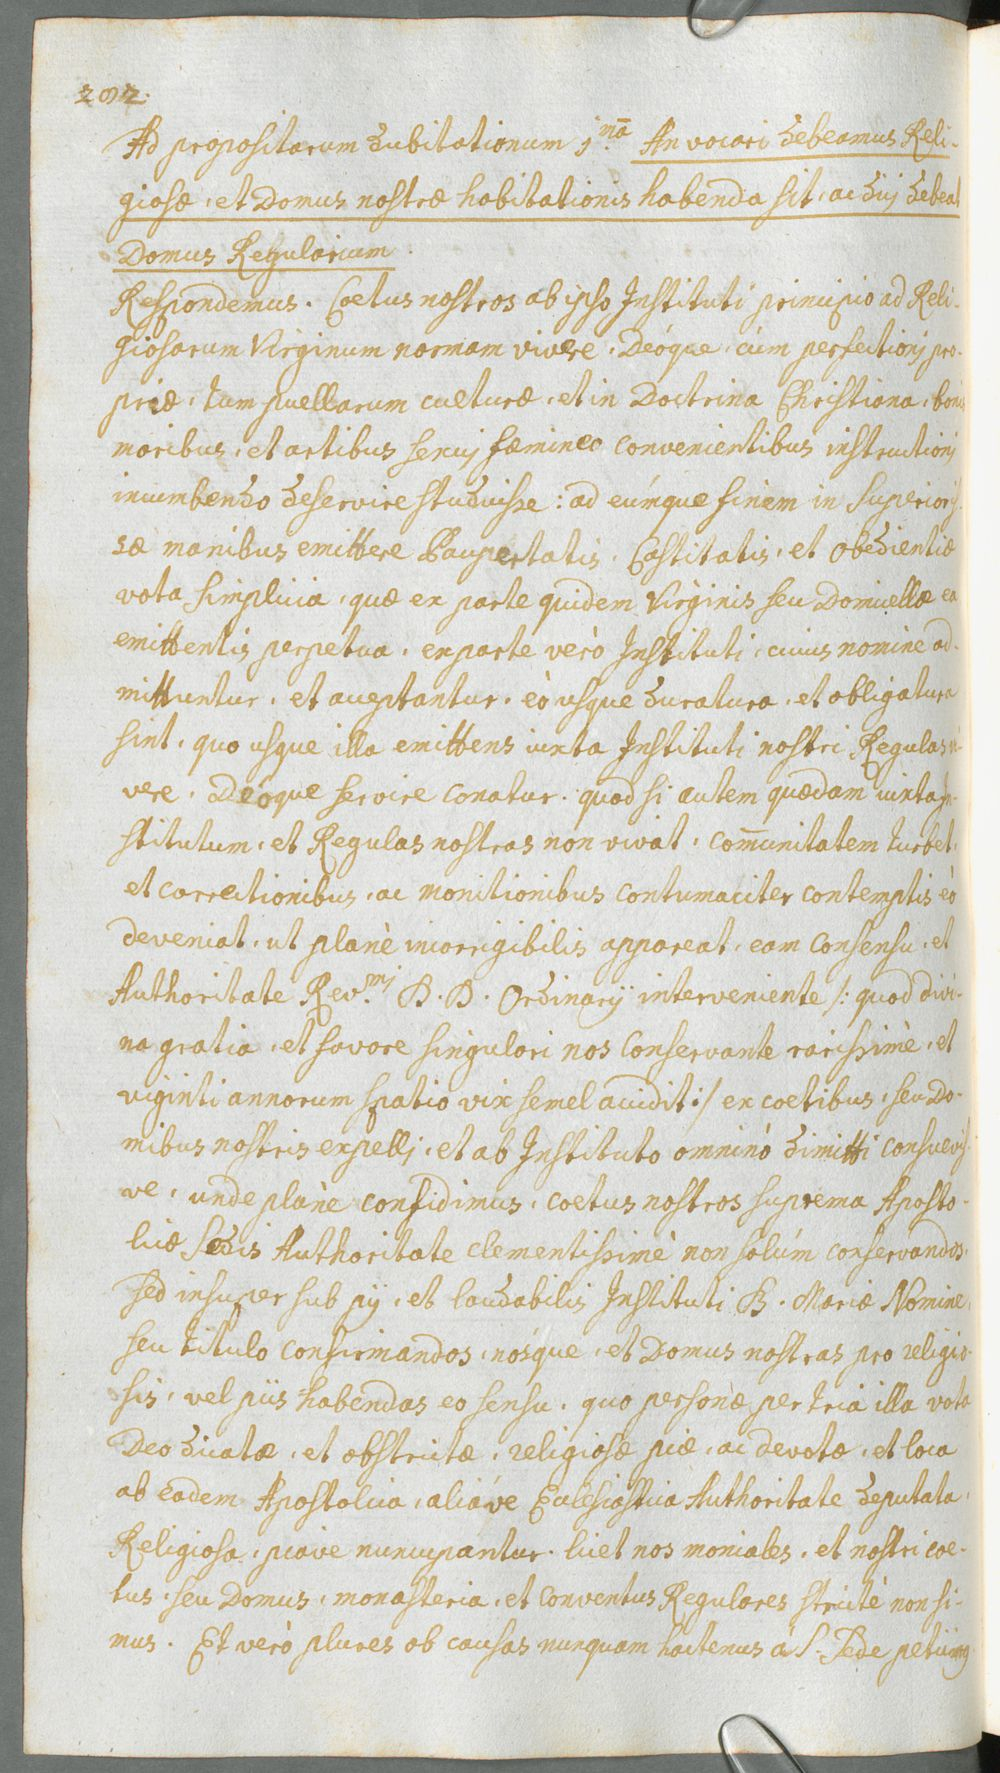 202.
Ad propositarum dubitationum j.mã An vocari debeamus Reli-
giosæ, et Domus nostræ habitationis habenda sit, ac dij debeat
Domus Regularium.
Respondemus. Coetus nostros ab ipso Instituti principio ad Reli-
giosarum Virginum normam vivere, Deóque, cùm perfectionj pro-
priæ, tum puellarum culturæ, et in Doctrina Christiana, bonis
moribus, et artibus sexuj fœmineo convenientibus instructionj
incumbendo deservire studuisse: ad eúmque finem in Superioris-
sæ manibus emittere Paupertatis, Castitatis, et obedientiæ
vota simplicia, quæ ex parte quidem Virginis seu Domicellæ ea
emittentis perpetua, ex parte verò Instituti, cuius nomine ad-
mittuntur, et acceptantur, eò usque duratura, et obligatura
sint, quo usque illa emittens iuxta Instituti nostri Regulas vi-
vere, Deoque servire conatur. quod si autem quædam iuxta In-
stitutum, et Regulas nostras non vivat, com̄unitatem turbet,
et correctionibus, ac monitionibus contumaciter contemptis eò
deveniat, ut planè incorrigibilis appareat, eam consensu, et
Authoritate Rev.mj D. D. Ordinarij interveniente /: quod divi-
na gratia, et favore singulari nos conservante rarissimè, et
viginti annorum spatio vix semel accidit :/ ex coetibus, seu Do-
mibus nostris expellj, et ab Instituto omninò dimitti consuevis-
ve, unde planè confidimus, coetus nostros suprema Aposto-
licæ Sedis Authoritate clementissimè non solùm conservandos,
sed insuper sub pij, et laudabilis Instituti B. Mariæ Nomine,
seu titulo confirmandos, nósque, et Domus nostras pro religio-
sis, vel piis habendas eo sensu, quo personæ per tria illa vota
Deo dicatæ, et obstrictæ, religiosæ piæ, ac devotæ, et loca
ab eadem Apostolica, aliáve Ecclesiastica Authoritate deputata,
Religiosa, piave nuncupantur. licet nos moniales, et nostri coe-
tus, seu Domus, monasteria, et Conventus Regulares strictè non si-
mus. Et verò plures ob causas nunquam hactenus á S. Sede petiimus